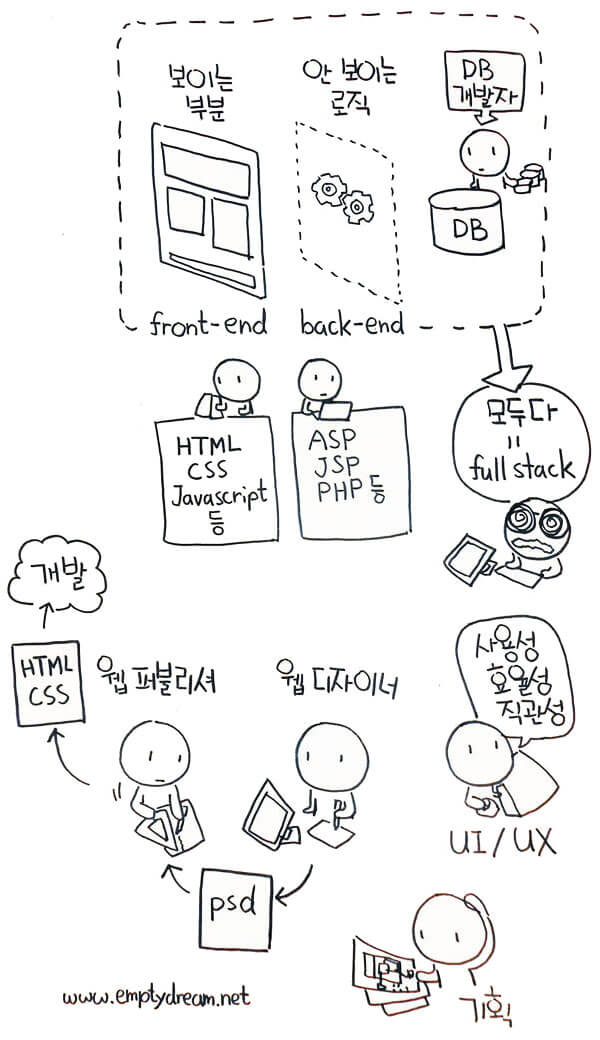 보이는
부분
안 보이는
로직
DB
개발자
DB
front-end
back-end
HTML
CSS
Javascript
등
ASP
JSP
PHP 등
모두다
=
full stack
개발
HTML
CSS
웹 퍼블리셔
웹 디자이너
psd
사용성
효율성
직관성
UI / UX
기획
www.emptydream.net